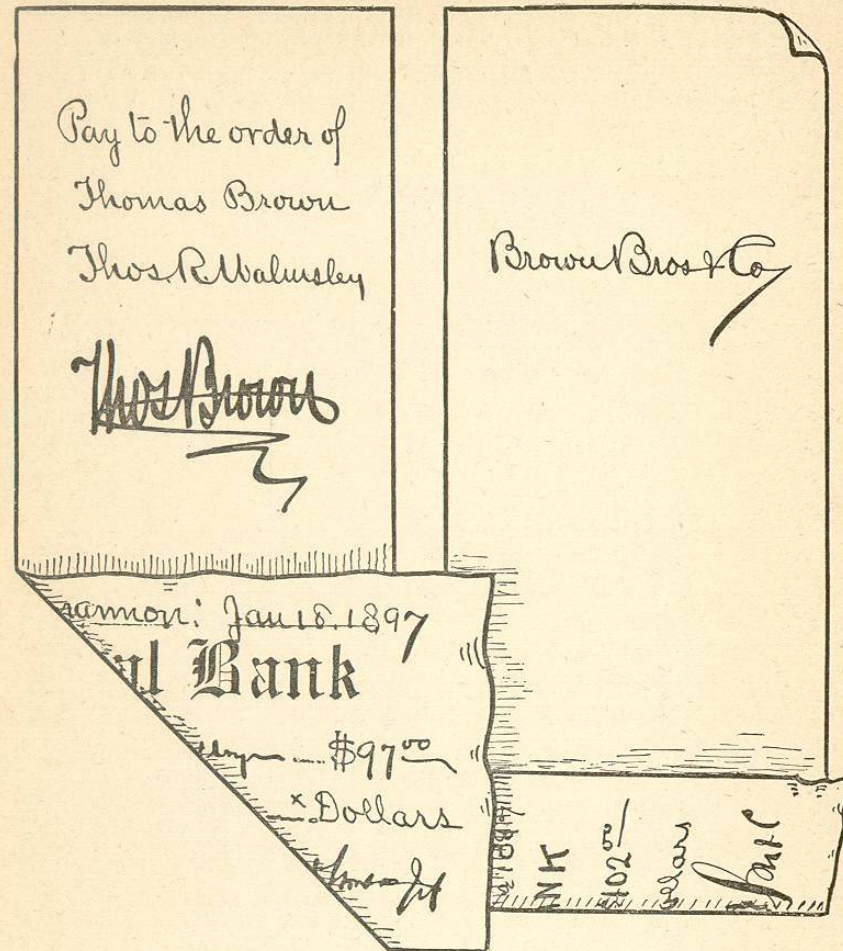 Pay to the order of
Thomas Brown
Thos. R. Walmsley
Thos Brown
Brown Bros & Co
Jan 18. 1897
al Bank
$97 00
Dollars
1897
NK
402 50/
ollars